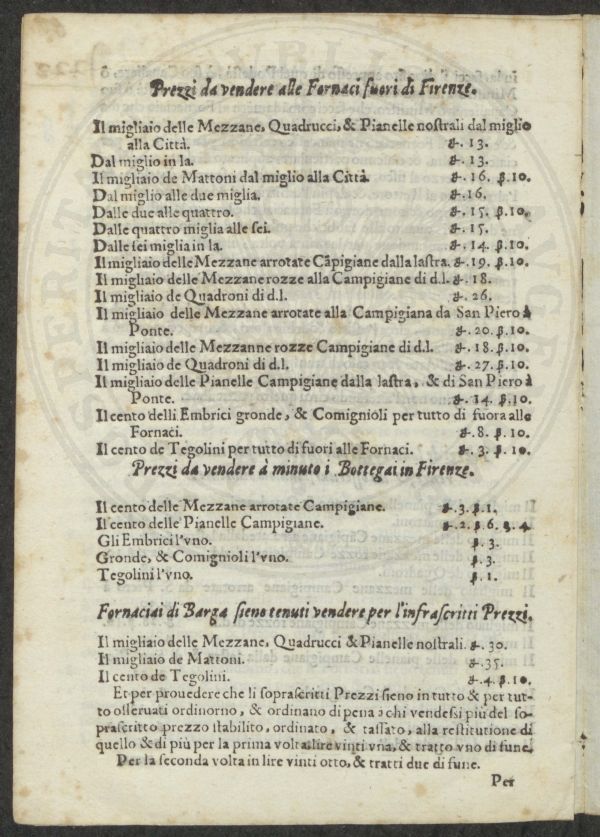 Prezzi da vendere alle Fornaci fuori di Firenze.
Il migliaio delle Mezzane, Quadrucci, & Pianelle nostrali dal miglio
alla Città. ₰. 13.
Dal miglio in la. ₰. 13.
Il migliaio de Mattoni dal miglio alla Città. ₰. 16. ꞵ. 10.
Dal miglio alle due miglia. ₰. 16.
Dalle due alle quattro. ₰. 15. ꞵ. 10.
Dalle quattro miglia alle sei. ₰. 15.
Dalle sei miglia in la. ₰. 14. ꞵ. 10.
Il migliaio delle Mezzane arrotate Cãpigiane dalla lastra. ₰. 19. ꞵ. 10.
Il migliaio delle Mezzane rozze alla Campigiane di d.l. ₰. 18.
Il migliaio de Quadroni di d.l. ₰. 26.
Il migliaio delle Mezzane arrotate alla Campigiana da San Piero à
Ponte. ₰. 20. ꞵ. 10.
Il migliaio delle Mezzanne rozze Campigiane di d.l. ₰. 18. ꞵ. 10.
Il migliaio de Quadroni di d.l. ₰. 27. ꞵ. 10.
Il migliaio delle Pianelle Campigiane dalla lastra, & di San Piero à
Ponte. ₰. 14. ꞵ. 10.
Il cento delli Embrici gronde, & Comignioli per tutto di fuora alle
Fornaci. ₰. 8. ꞵ. 10.
Il cento de Tegolini per tutto di fuori alle Fornaci. ₰. 3. ꞵ. 10.
Prezzi da vendere à minuto i Bottegai in Firenze.
Il cento delle Mezzane arrotate Campigiane. ₰. 3. ꞵ. 1.
Il cento delle Pianelle Campigiane. ₰. 2. ꞵ. 6. ꝗ. 4.
Gli Embrici l'vno. ꞵ. 3.
Gronde, & Comignioli l'vno. ꞵ. 3.
Tegolini l'vno. ꞵ. 1.
Fornaciai di Barga sieno tenuti vendere per l'infrascritti Prezzi.
Il migliaio delle Mezzane, Quadrucci & Pianelle nostrali. ₰. 30.
Il migliaio de Mattoni. ₰. 35.
Il cento de Tegolini. ₰. 4. ꞵ. 10.
Et per prouedere che li soprascritti Prezzi sieno in tutto & per tut-
to osseruati ordinorno, & ordinano di pena à chi vendessi più del so-
prascritto prezzo stabilito, ordinato, & tassato, alla restitutione di
quello & di più per la prima volta lire vinti vna, & tratto vno di fune.
Per la seconda volta in lire vinti otto, & tratti due di fune.
Per